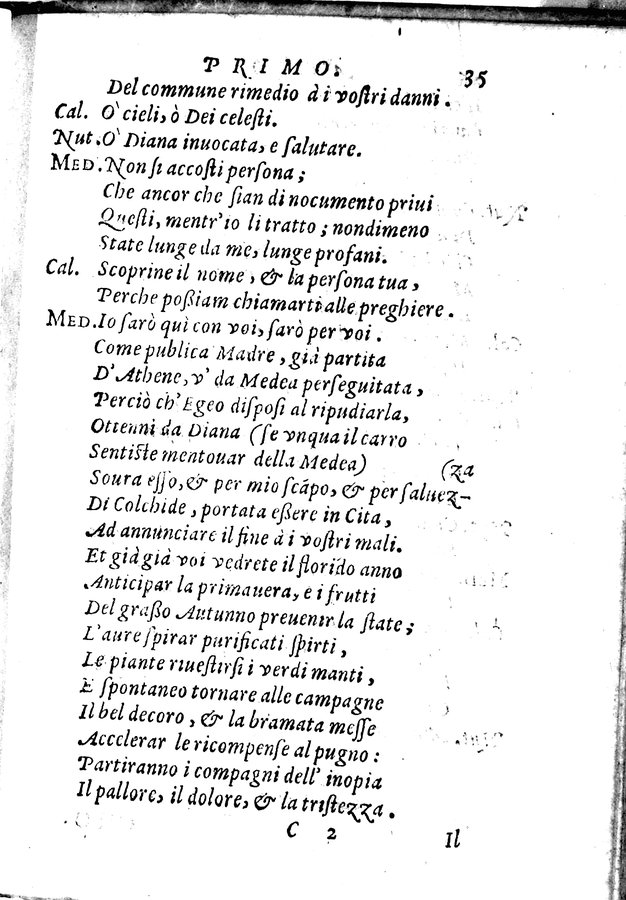 PRIMO. 35
Del commune rimedio à i voſtri danni.
Cal. O' cieli, ò Dei celeſti.
Nut. O' Diana inuocata, e ſalutare.
MED. Non ſi accoſti perſona;
Che ancor che ſian di nocumento priui
Queſti, mentr'io li tratto; nondimeno
State lunge da me, lunge profani.
Cal. Scoprine il nome, & la perſona tua,
Perche poßiam chiamarti alle preghiere.
MED. Io ſarò quì con voi, ſarò per voi.
Come publica Madre, già partita
D'Athene, v' da Medea perſeguitata,
Perciò ch'Egeo diſpoſi al ripudiarla,
Ottenni da Diana (ſe vnqua il carro
Sentiſte mentouar della Medea) (za
Soura eſſo, & per mio ſcãpo, & per ſaluez-
Di Colchide, portata eßere in Cita,
Ad annunciare il fine à i voſtri mali.
Et già già voi vedrete il florido anno
Anticipar la primauera, e i frutti
Del graßo Autunno preuenir la ſtate;
L'aure ſpirar purificati ſpirti,
Le piante riueſtirſi i verdi manti,
E ſpontaneo tornare alle campagne
Il bel decoro, & la bramata meſſe
Accelerar le ricompenſe al pugno:
Partiranno i compagni dell' inopia
Il pallore, il dolore, & la triſtezza.
C 2 Il